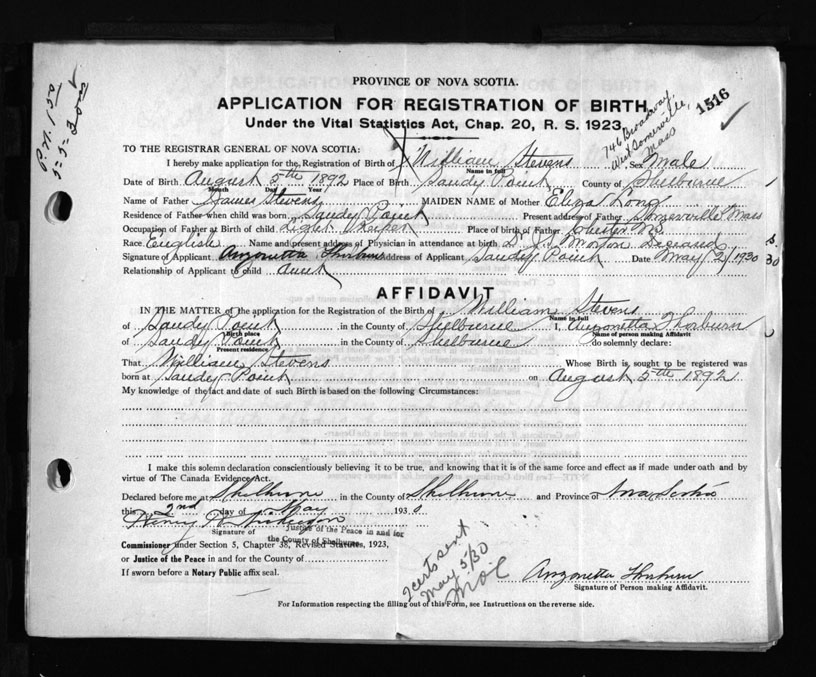 PROVINCE OF NOVA SCOTIA.
1516
APPLICATION FOR REGISTRATION OF BIRTH
Under the Vital Statistics Act, Chap. 20, R. S. 1923.
746 Broadway,
West Somerville,
Mass
TO THE REGISTRAR GENERAL OF NOVA SCOTIA:
I hereby make application for the Registration of Birth of William Stevens Sex Male
Name in full
Date of Birth August 5th 1892 Place of Birth Sandy Point County of Shelburne
Month Day Year
Name of Father James Stevens MAIDEN NAME of Mother Eliza Long
Residence of Father when child was born Sandy Point Present address of Father Somerville Mass
Occupation of Father at Birth of child Light Keeper Place of birth of Father
Race English Name and present address of Physician in attendance at birth Dr Morton Deceased
Signature of Applicant Anzonetta Thorburn Address of Applicant Sandy Point Date May 2, 1930
Relationship of Applicant to child Aunt
AFFIDAVIT
IN THE MATTER of the application for the Registration of the Birth of William Stevens
Name in full
of Sandy Point in the County of Shelburne I, Anzonetta Thorburn
Birth place Name of person making Affidavit
of Sandy Point in the County of Shelburne do solemnly declare:
Present residence
That William Stevens Whose Birth is sought to be registered was
born at Sandy Point on August 5th 1892.
My knowledge of the fact and date of such Birth is based on the following Circumstances:
I make this solemn declaration conscientiously believing it to be true, and knowing that it is of the same force and effect as if made under oath and by
virtue of The Canada Evidence Act.
Declared before me at Shelburne in the County of Shelburne and Province of Nova Scotia
this 2nd day of May 1930
Henry
Signature of Justice of the Peace in and for
the County of Shelburne
Commissioner under Section 5, Chapter 38, Revised Statutes, 1923,
or Justice of the Peace in and for the County of
If sworn before a Notary Public affix seal.
2 certs sent
May 5/30
Anzonetta Thorburn
Signature of Person making Affidavit.
For Information respecting the filling out of this Form, see Instructions on the reverse side.